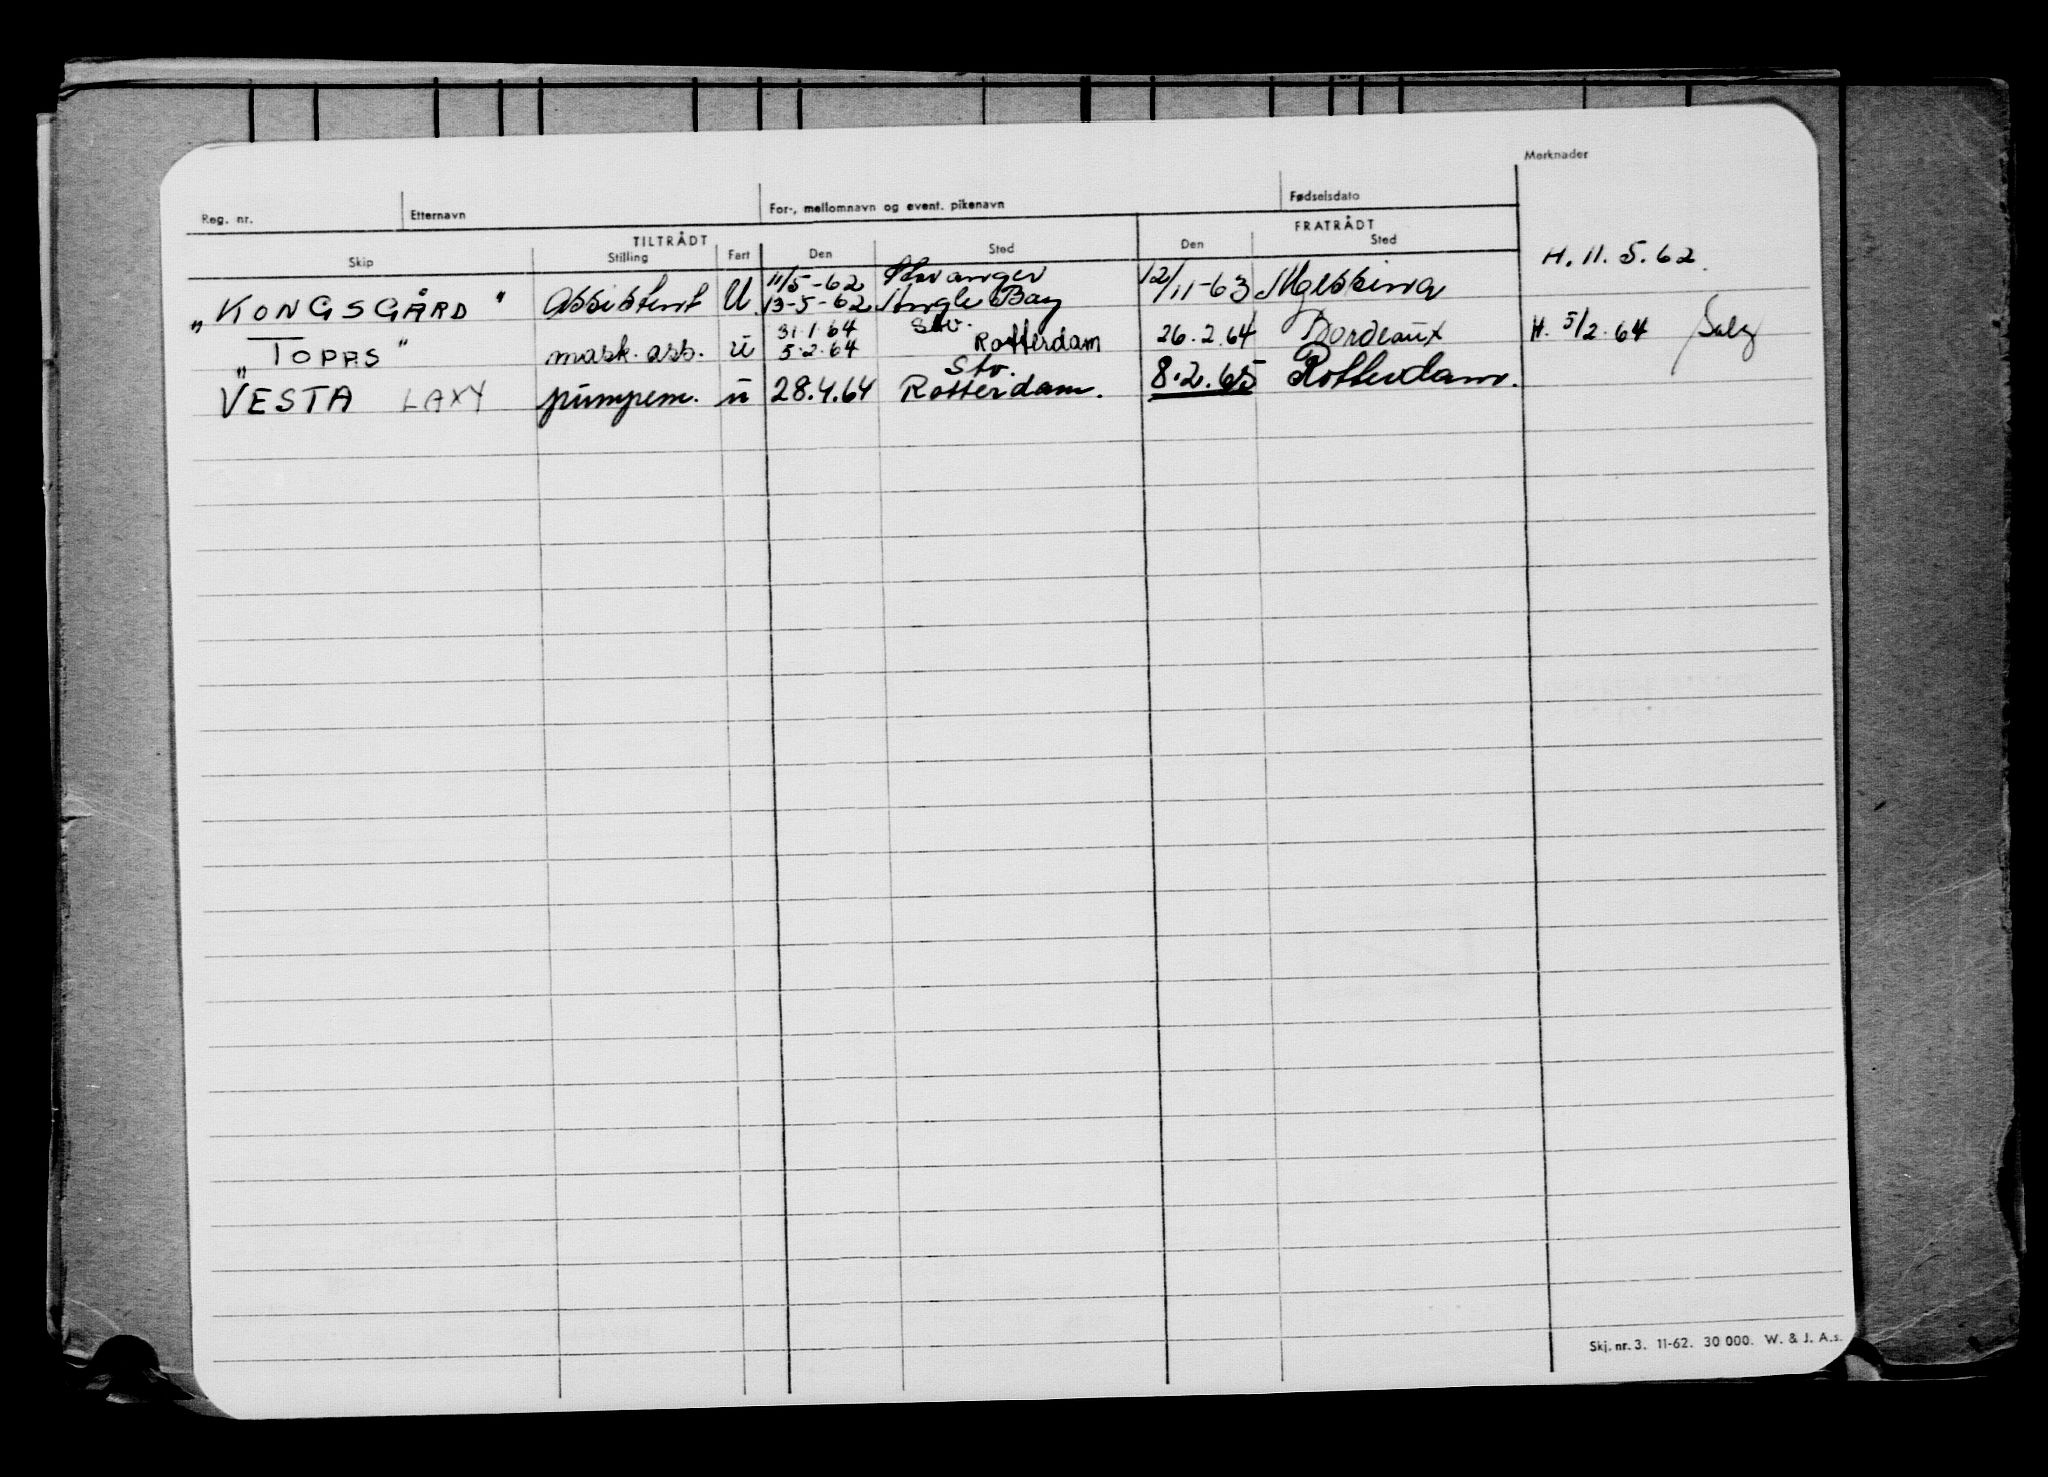 Merknader
Reg. nr. Etternavn For-, mellomnavn og event. pikenavn Fødselsdato
TILTRÅDT FRATRÅDT
Skip Stilling Fart Den Sted Den Sted
H. 11.5.62.
11/5-62 Stavanger
„KONGSGÅRD" Assistent U 13-5-62 Angle Bay 12/11-63 Messina
31.1.64 Stv.
„TOPAS" mask. ass. u 5.2.64 Rotterdam 26.2.64 Bordeaux H. 5/2.64
Stv.
VESTA LAXY pumpem. u 28.4.64 Rotterdam. 8.2.65 Rotterdam.
Skj. nr. 3. 11-62. 30 000. W. & J. A.s.